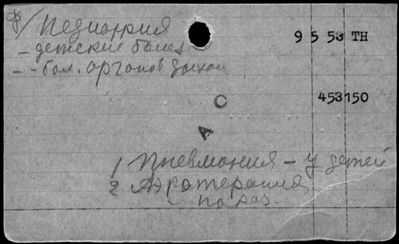 ф/ Педиатрия
9 5 53 TH
- детские болез
- - бол. органов дыхан
453150
С
А
1 Пневмония - у детей
2 Аэротерапия